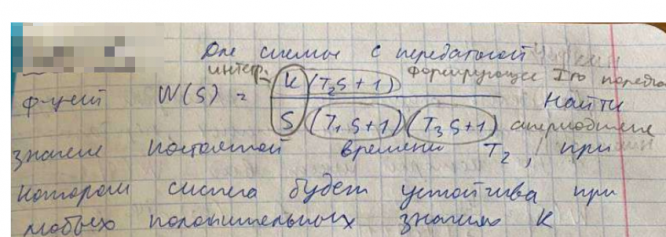 Для системы с передаточной
интегр. формирующее Iго порядка
ф-цией W(S) = k(T₂S+1) / S(T₁S+1)(T₃S+1) Найти
апериодические
значение постоянной времени T₂, при
котором система будет устойчива при
любых положительных значениях K